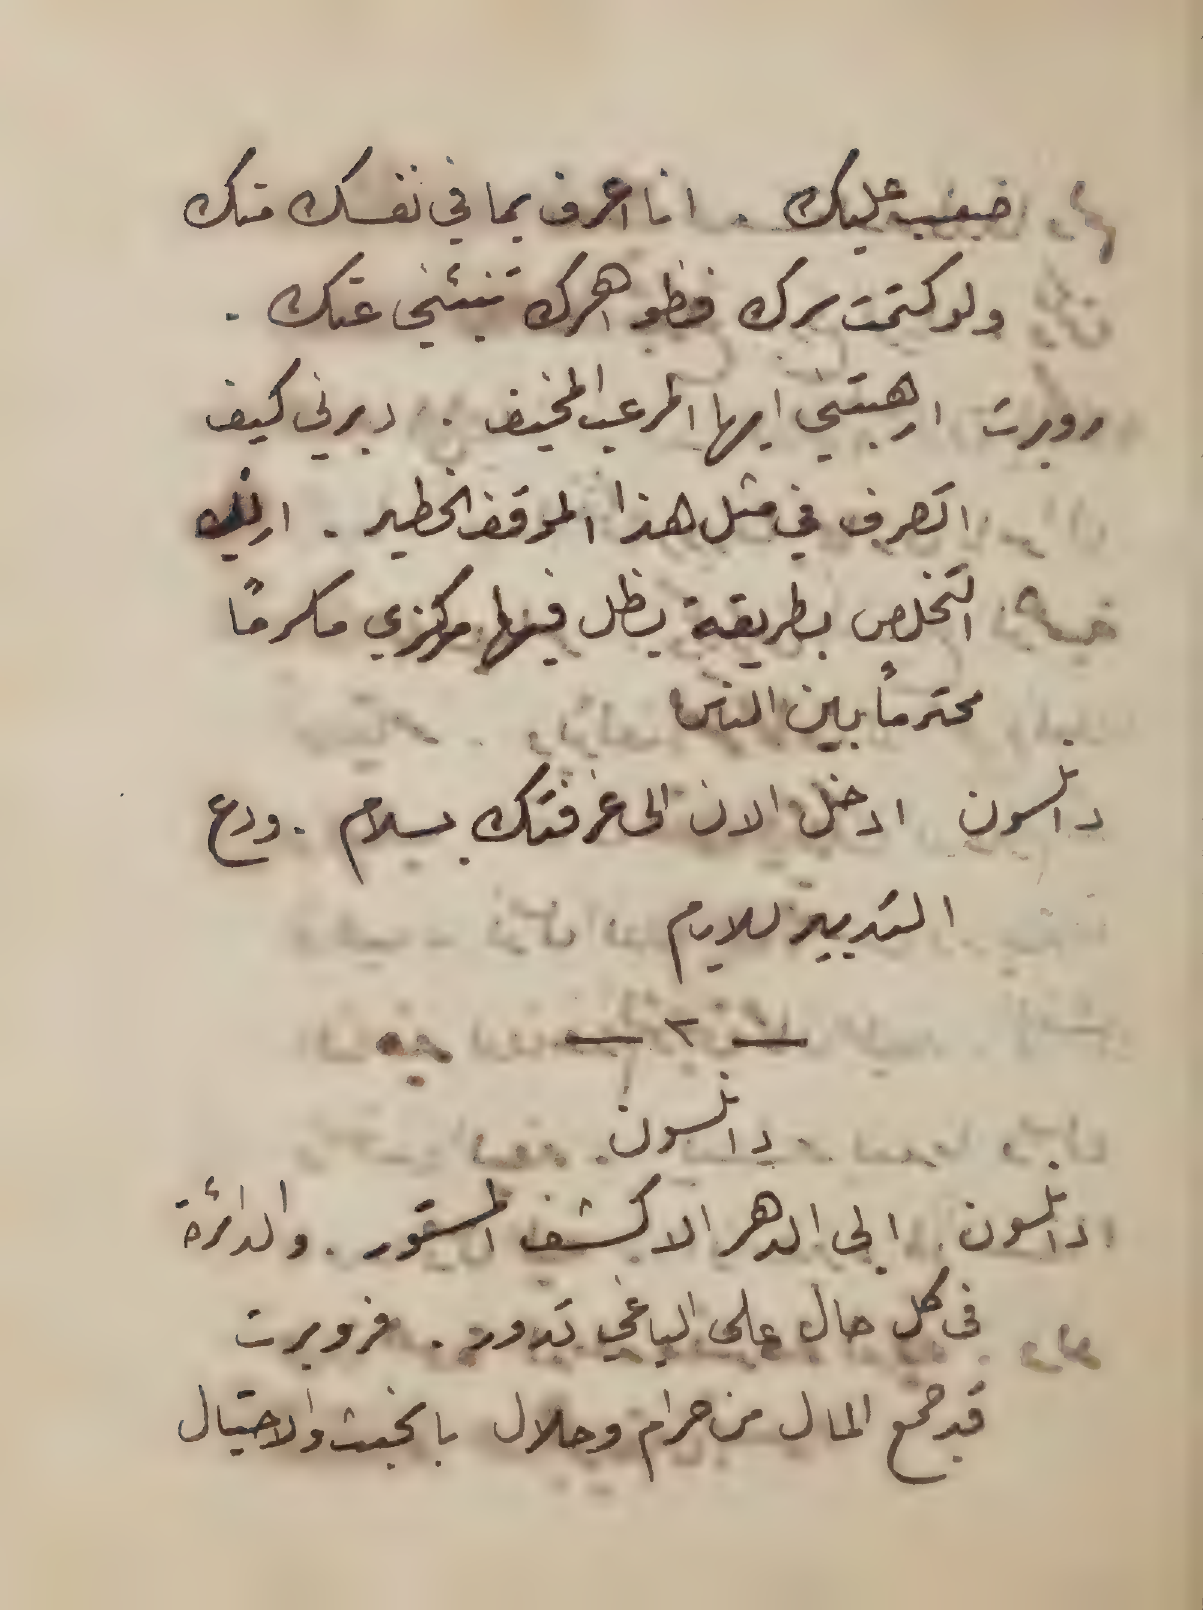 خفيف عليك . انا اعرف بما في نفسك منك
ولو كتمت سرك فظواهرك تنبئني عنك .
روبرت ارهبتني ايها المرعب المخيف . دبرني كيف
اتصرف في مثل هذا الموقف الخطير .
التخلص بطريقة يظل فيها مركزي مكرمًا
محترمًا بين الناس
دانلسون ادخل الان الى غرفتك بسلام . ودع
التدبير للايام
— ٢ —
دانلسون
دانلسون ابى الدهر الا كشف المستور . والدائرة
في كل حال على الباغي تدور . فروبرت
قد جمع المال من حرام وحلال بالخبث والاحتيال